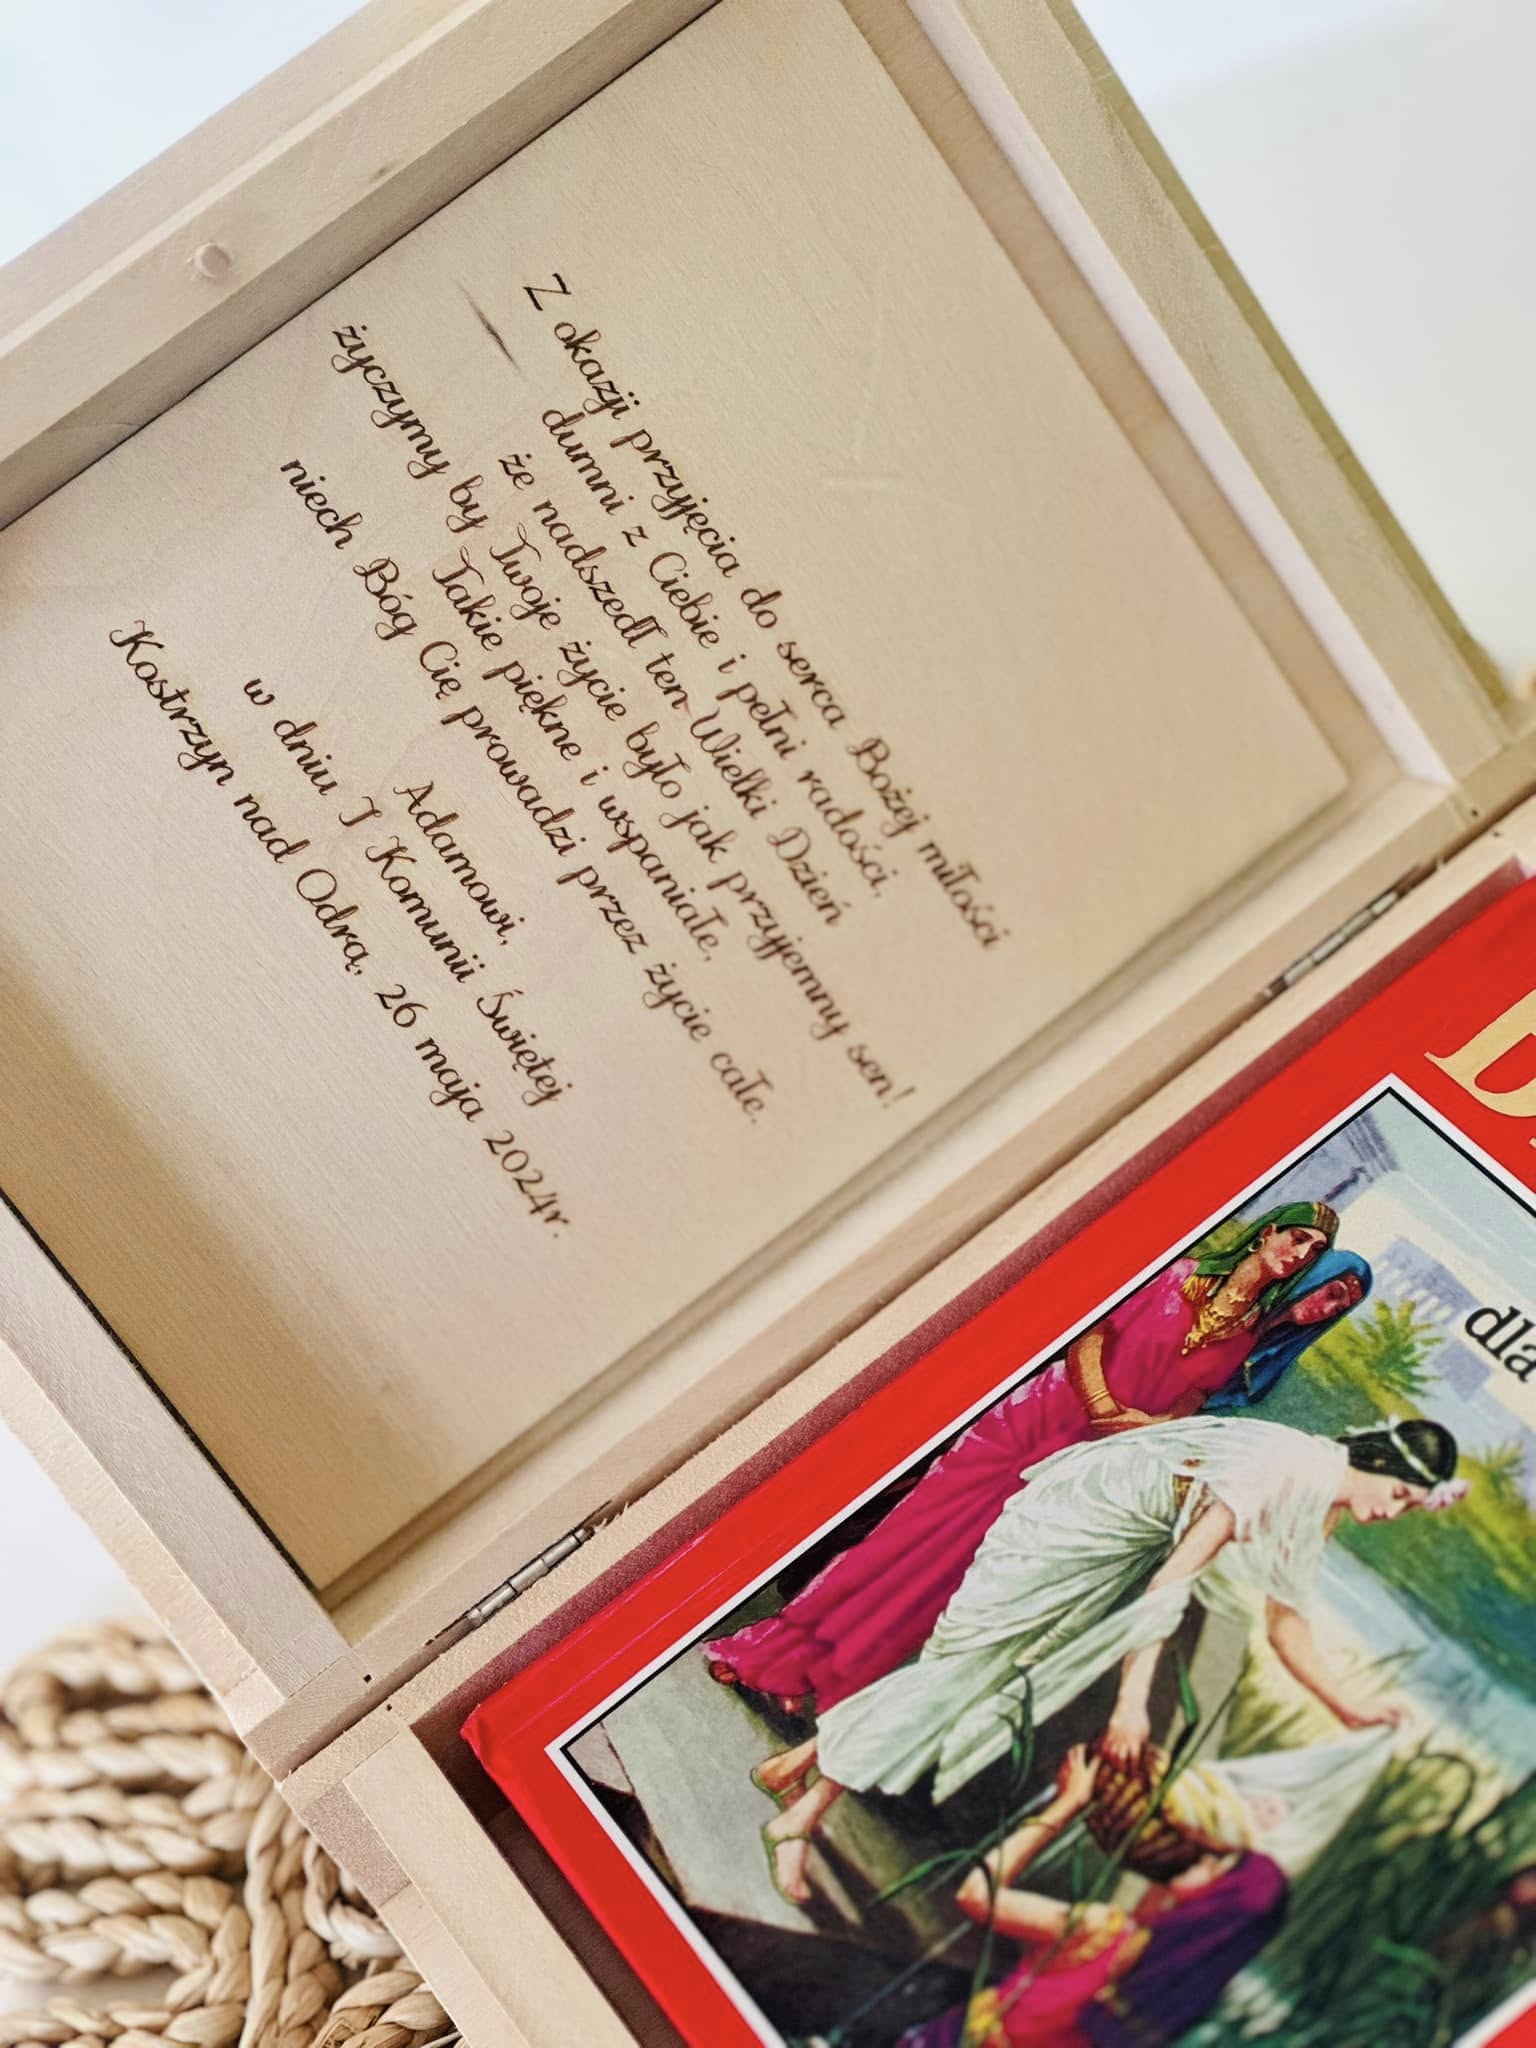 Z okazji przyjęcia do serca Bożej miłości
dumni z Ciebie i pełni radości,
że nadszedł ten Wielki Dzień
życzymy by Twoje życie było jak przyjemny sen!
Takie piękne i wspaniałe,
niech Bóg Cię prowadzi przez życie całe.
Adamowi,
w dniu I Komunii Świętej
Kostrzyn nad Odrą, 26 maja 2024r.
dla